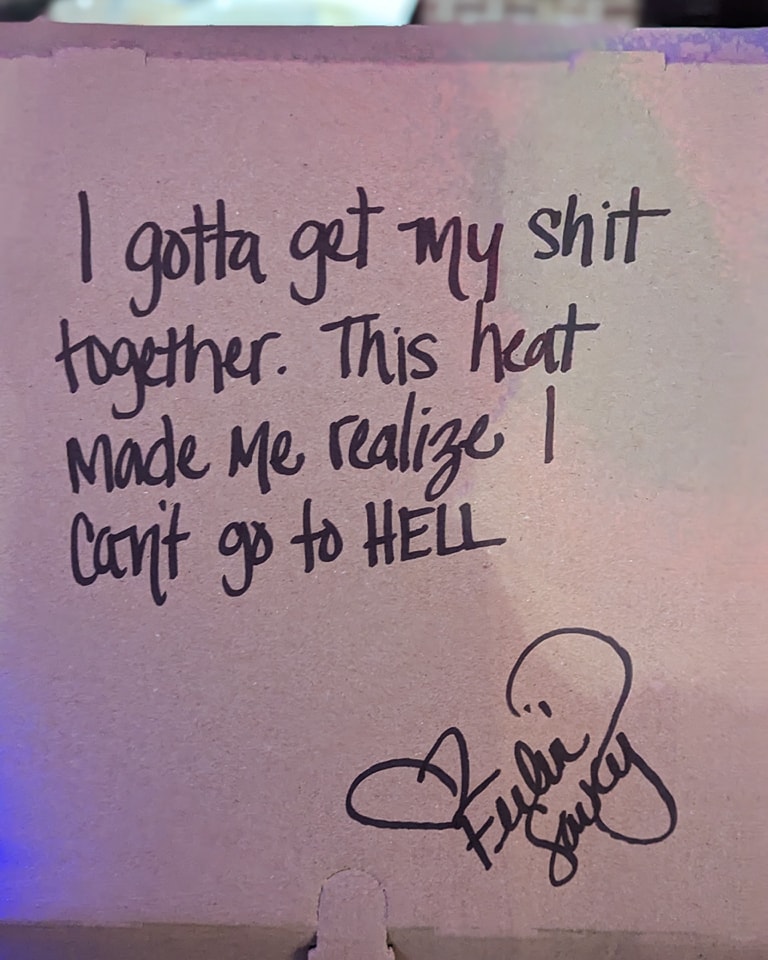 I gotta get my shit
together. This heat
made me realize I
can't go to HELL
Feelin
Saucy